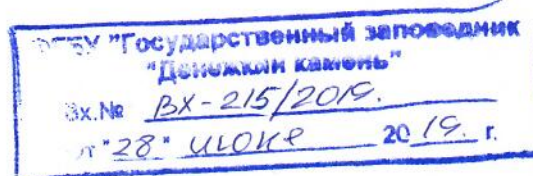 ФГБУ "Государственный заповедник
"Денежкин камень"
Вх.№ ВХ-215/2019.
от "28" июня 2019. г.